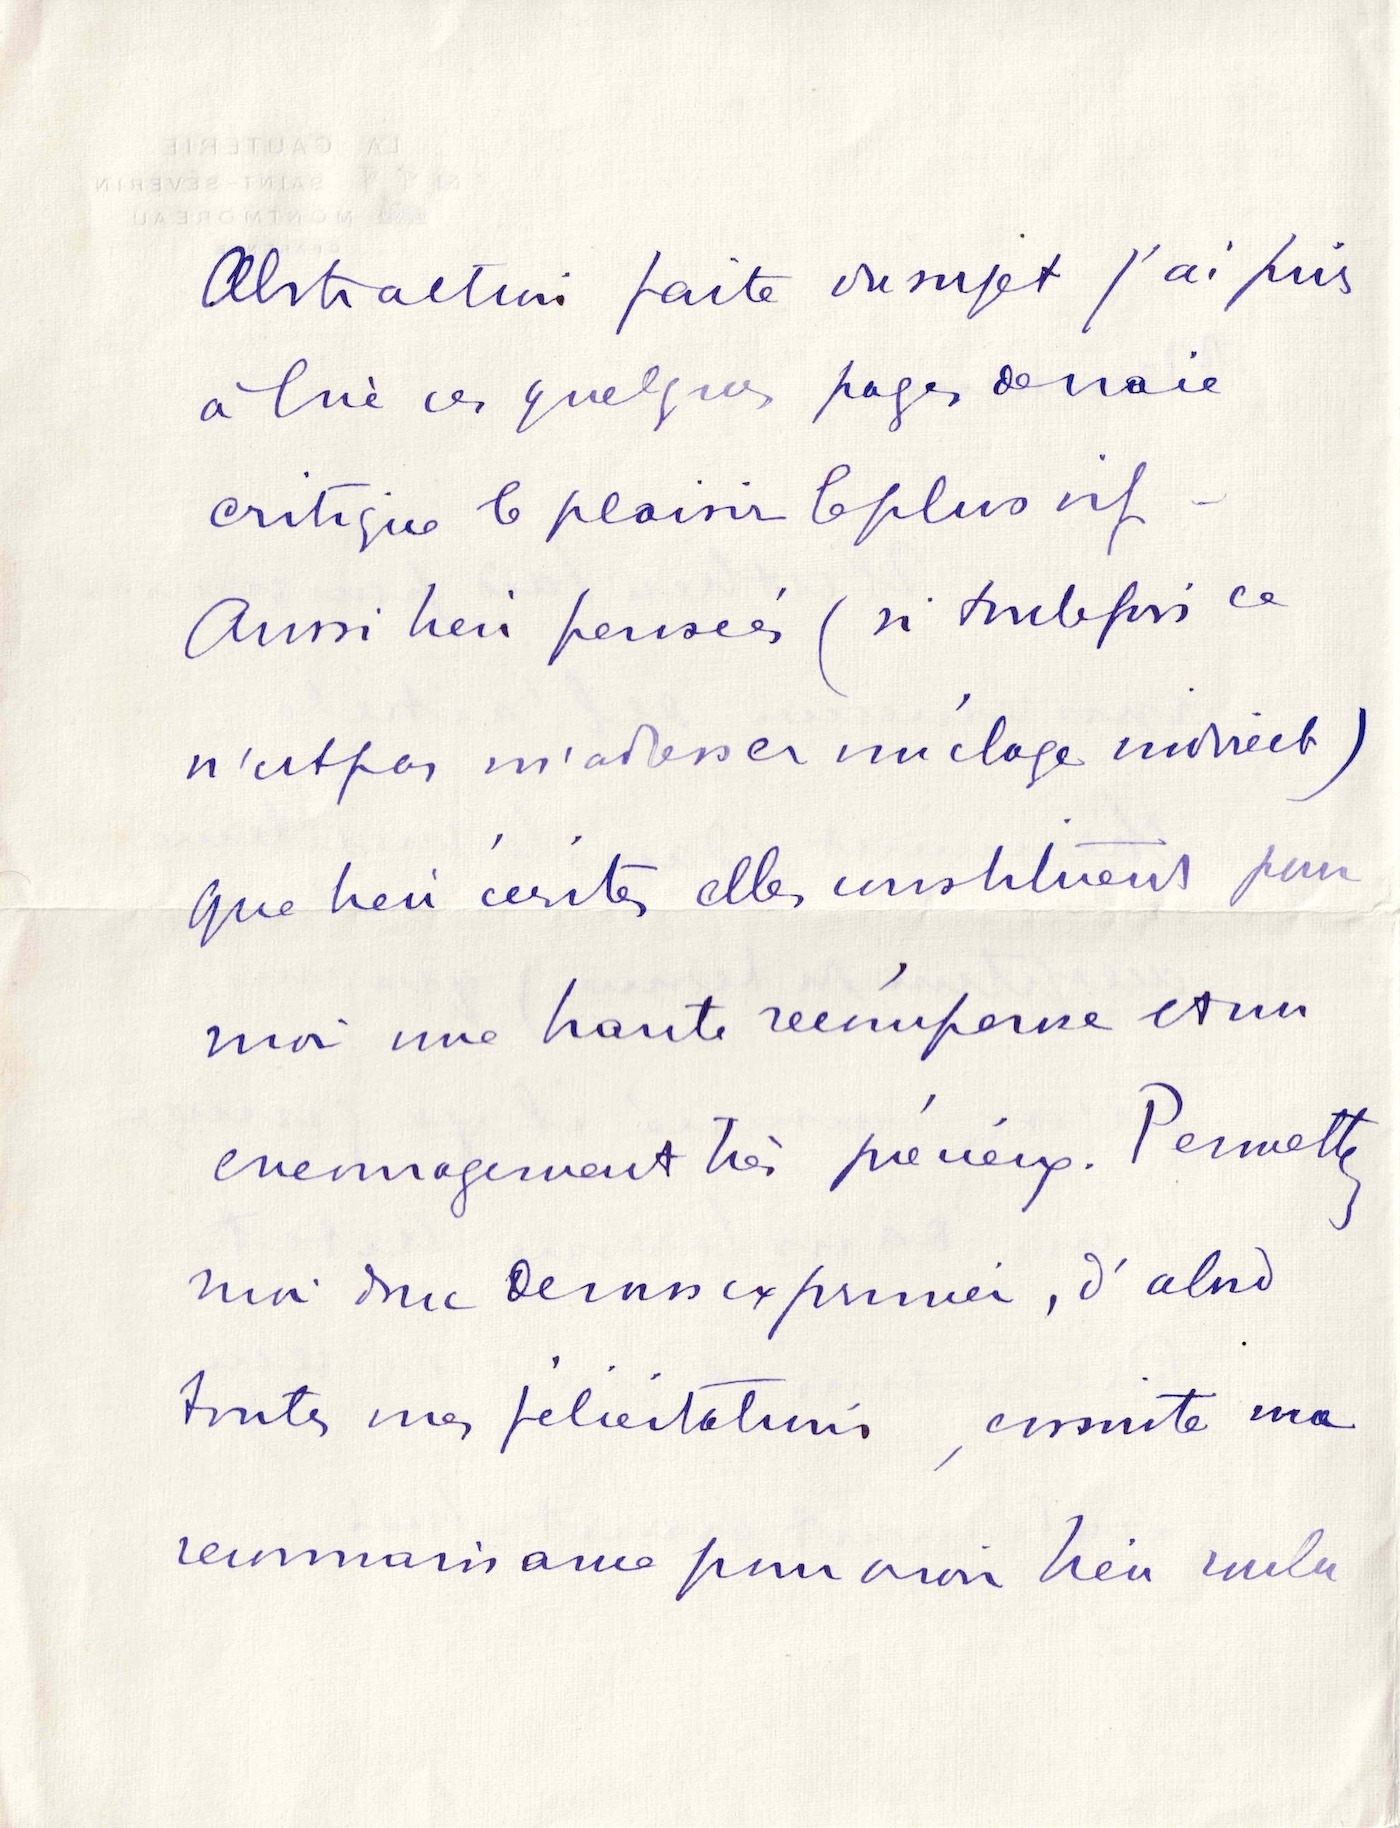 LA GAUTERIE
SAINT-SÉVERIN
MONTMOREAU
Abstraction faite du sujet j'ai pris
à lire ces quelques pages de vraie
critique le plaisir le plus vif -
Aussi bien pensées (si toutefois ce
n'est pas m'adresser un éloge indirect)
que bien écrites elles constituent pour
moi une haute récompense et un
encouragement très précieux. Permettez
moi donc de vous exprimer, d'abord
toutes mes félicitations, ensuite ma
reconnaissance pour avoir bien voulu